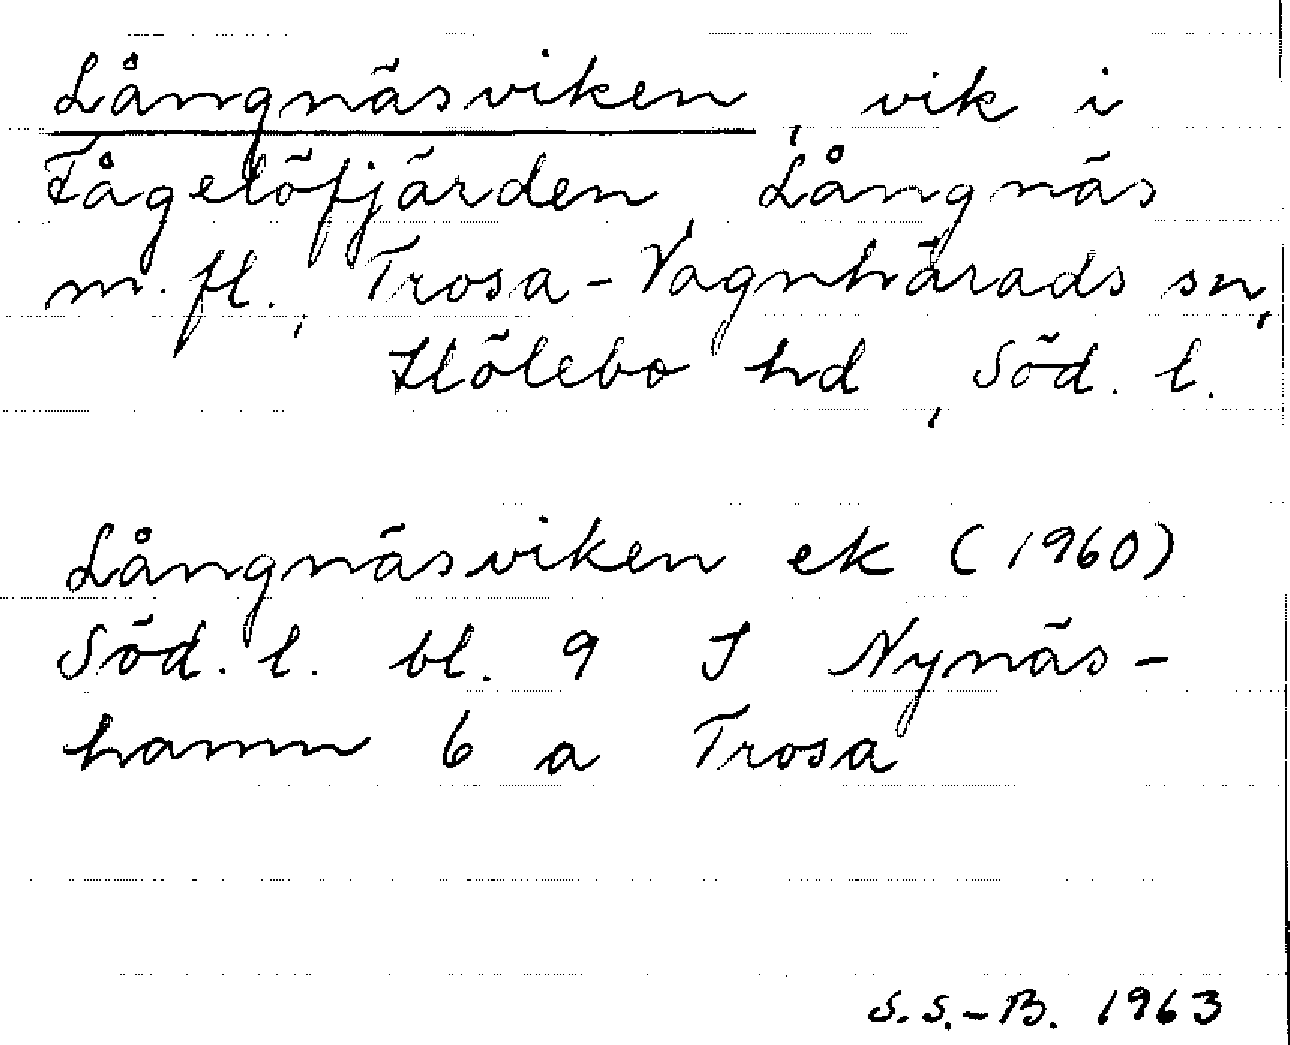 Långnäsviken, vik i
Fågelöfjärden, Långnäs
m. fl., Trosa-Vagnhärads sn,
Hölebo hd, Söd. l.
Långnäsviken ek (1960)
Söd. l. bl. 9 J Nynäs-
hamn 6 a Trosa
S.S.-B. 1963